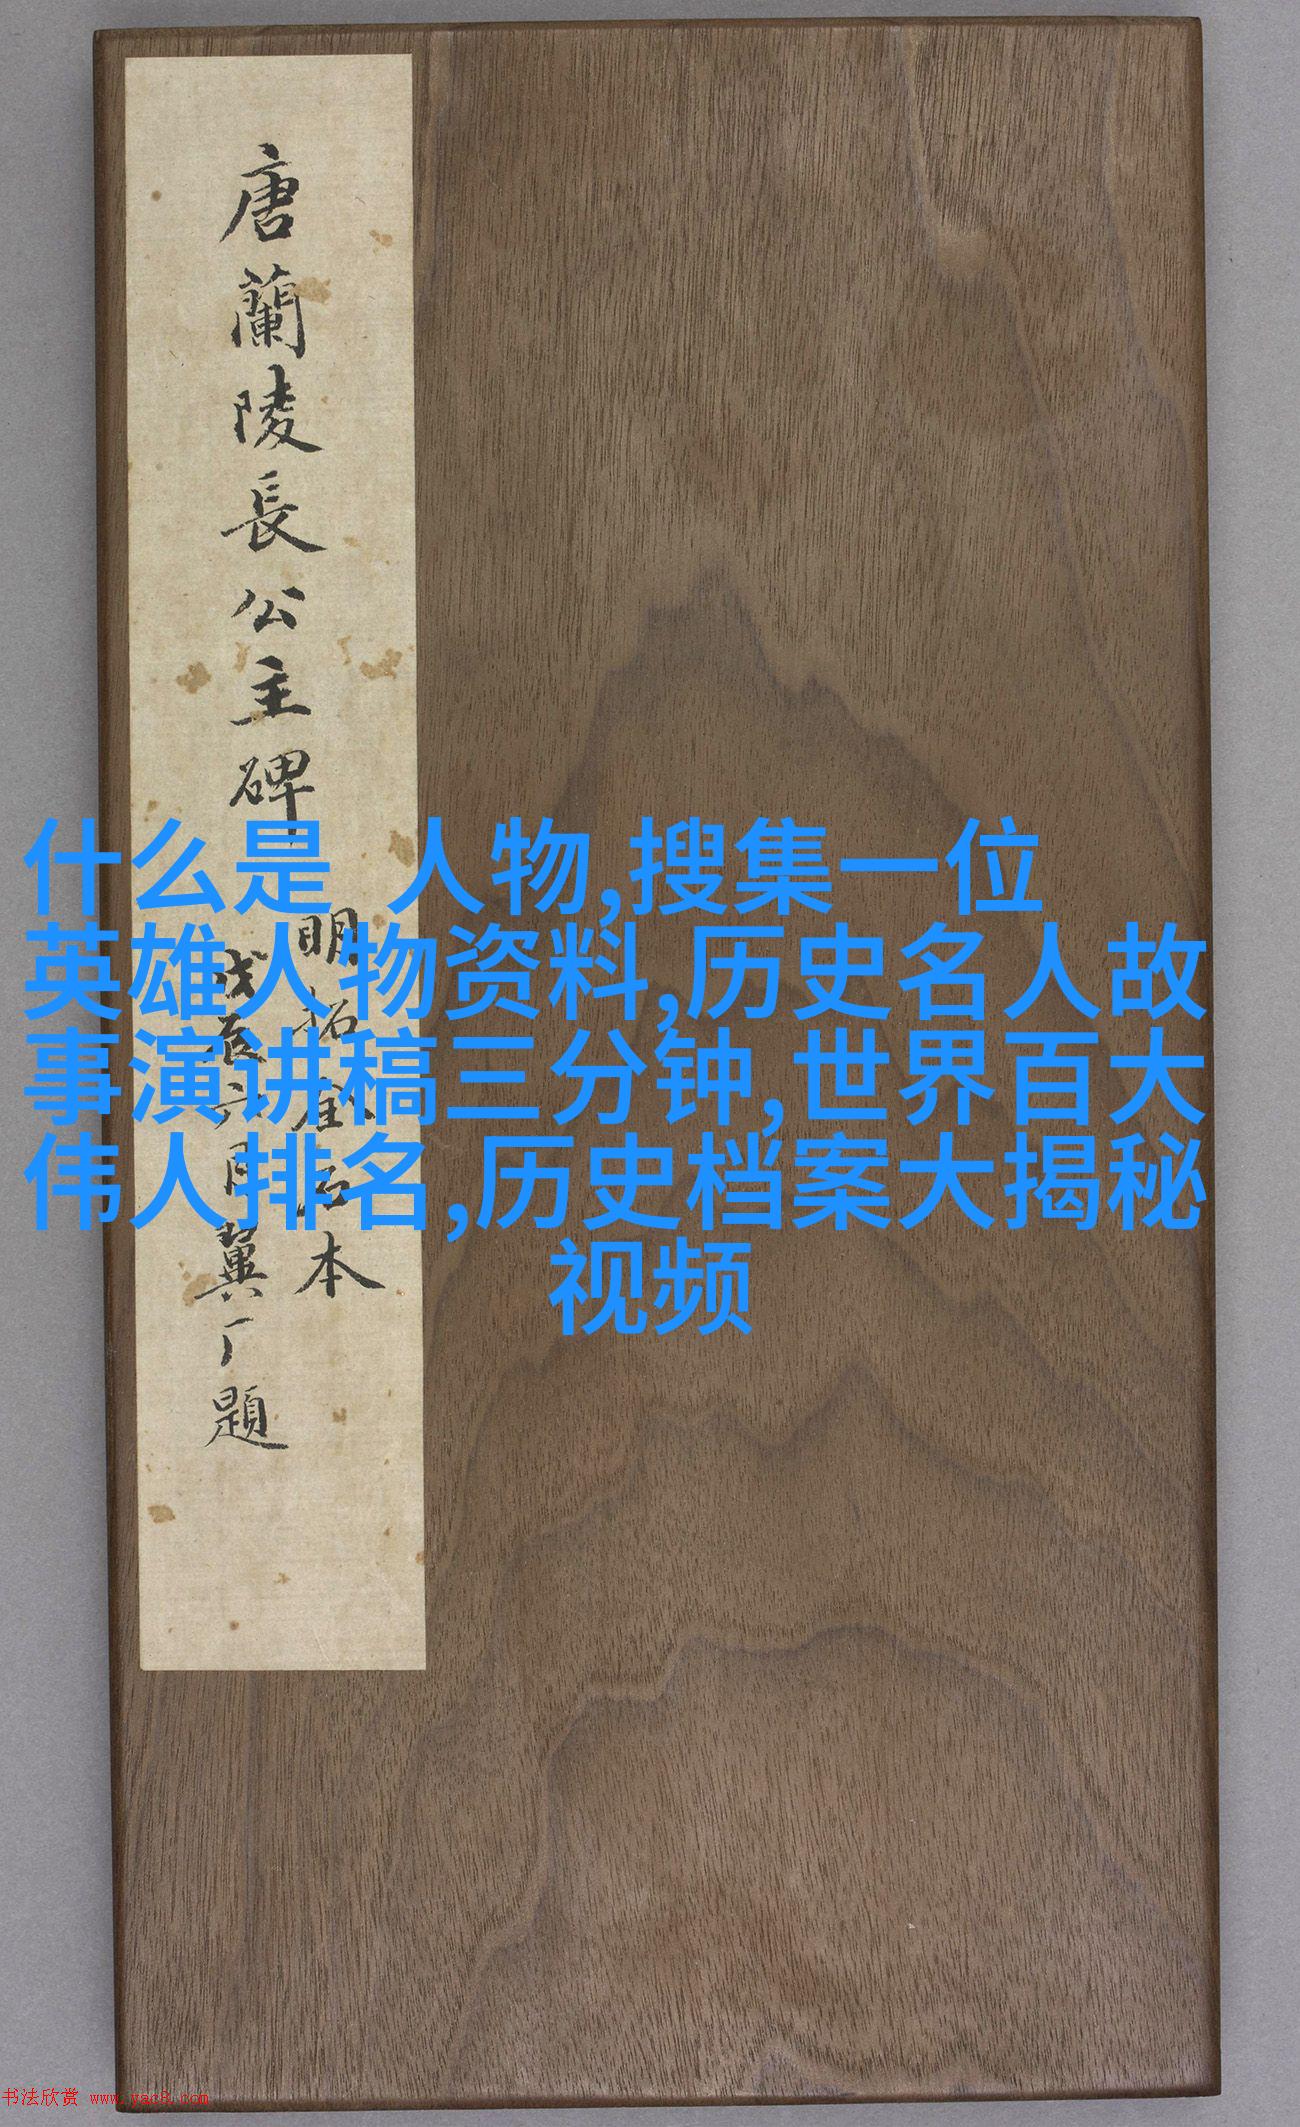 唐蘭陵長公主碑
明拓劉占本
戊辰六月翼厂題
什么是 人物,搜集一位
英雄人物资料,历史名人故
事演讲稿三分钟,世界百大
伟人排名,历史档案大揭秘
视频
书法欣赏 www.yac8.com